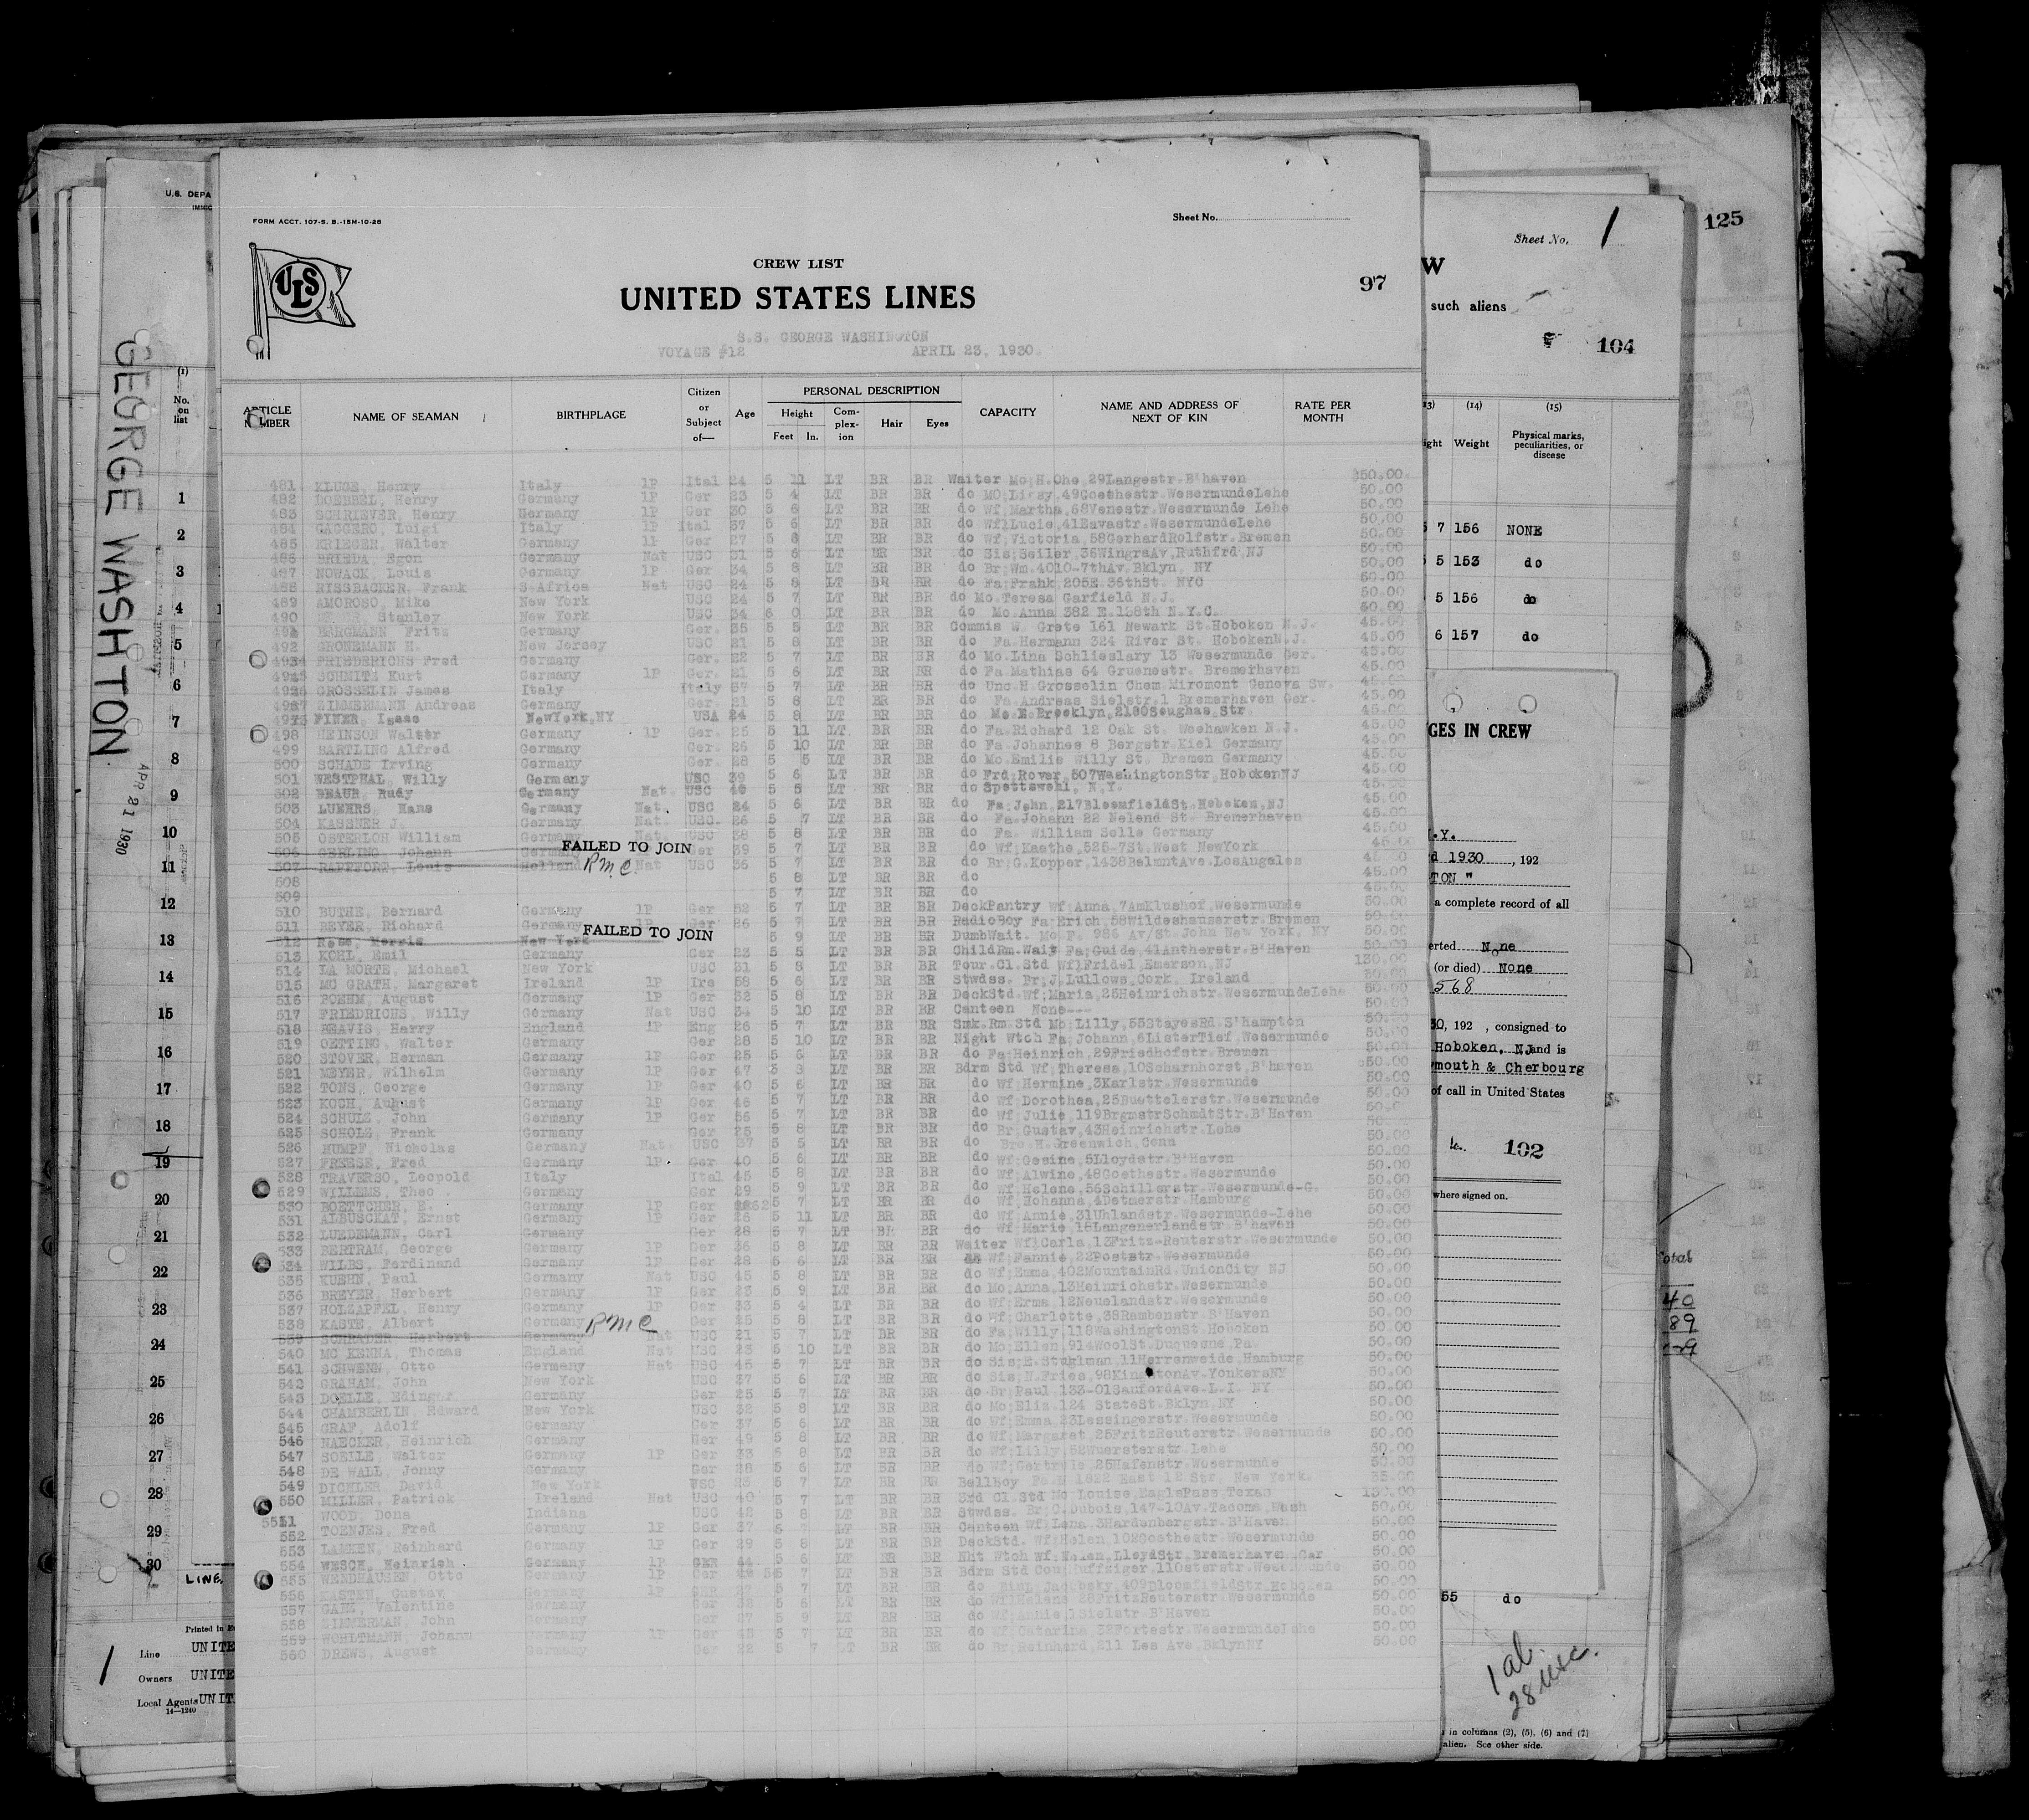 FORM ACCT. 107-S. B.-15M-10-28
Sheet No.
ULS
CREW LIST
97
UNITED STATES LINES
S.S. GEORGE WASHINGTON
VOYAGE #12 APRIL 23, 1930.
ARTICLE NUMBER NAME OF SEAMAN BIRTHPLACE Citizen or Subject of— Age PERSONAL DESCRIPTION Height Feet In. Com-plex-ion Hair Eyes CAPACITY NAME AND ADDRESS OF NEXT OF KIN RATE PER MONTH
481 KLUGE, Henry Italy 1P Ital 24 5 11 LT BR BR Waiter Mo;H.Ohe,29Langestr.B'haven 50.00
482 DOEBBEL, Henry Germany 1P Ger 23 5 4 LT BR BR do 49Goethestr.WesermundeLehe 50.00
483 SCHRIEVER, Henry Germany 1P Ger 30 5 6 LT BR BR do Wf;Martha, Wesermunde Lehe 50.00
484 GAGGERO, Luigi Italy 1P Ital 37 5 6 LT BR BR do Wf)Lucie, WesermundeLehe 50.00
485 KRIEGER, Walter Germany Ger 27 5 8 LT BR BR do Wf;Victoria,58GerhardRolfstr.Bremen 50.00
486 BRIEDA, Egon Germany Nat USC 31 5 6 LT BR BR do Sis;Seiler,35WingraAv,Ruthfrd,NJ 50.00
487 NOWACK, Louis Germany 1P Ger 34 5 8 LT BR BR do Br;Wm.4010-7thAv.Bklyn, NY 50.00
488 RISSBACKER, Frank S.Africa Nat USC 24 5 8 LT BR BR do Fa;Frahk,205E.36thSt. NYC 50.00
489 AMOROSO, Mike New York USC 24 5 7 LT BR BR do Mo.Teresa Garfield N.J. 50.00
490 Stanley New York USC 34 6 0 LT BR BR do Mo.Anna 382 E.158th N.Y.C. 50.00
491 BERGMANN Fritz Germany Ger. 35 5 5 LT BR BR Commis W. Grete 161 Newark St.Hoboken N.J. 45.00
492 GRONEMANN H. New Jersey USC 21 5 8 LT BR BR do Fa.Hermann 324 River St. HobokenN.J. 45.00
FRIEDERICHS Fred Germany Ger. 22 5 7 LT BR BR do Mo.Lina Schlieslary 13 Wesermunde Ger. 45.00
SCHMITZ Kurt Germany 1P Ger. 21 5 6 LT BR BR do Fa Mathias 64 Gruenestr. Bremerhaven 45.00
GROSSELIN James Italy Italy 37 5 7 LT BR BR do Unc.H.Grosselin Chem.Miromont Geneva Sw. 45.00
ZIMMERMANN Andreas Germany Ger. 21 5 8 LT BR BR do Fa. Andreas Sielstr.1 Bremerhaven Ger. 45.00
PINER, Isaac NewYork,NY USA 24 5 8 LT BR BR do Mo.E.Brooklyn, Str 45.00
498 HEINSON Walter Germany 1P Ger. 25 5 11 LT BR BR do Fa.Richard 12 Oak St. Weehawken N.J. 45.00
499 BARTLING Alfred Germany Ger. 26 5 10 LT BR BR do Fa.Johannes 8 Bergstr.Kiel Germany 45.00
500 SCHADE Irving Germany Ger. 28 5 5 LT BR BR do Mo.Emilie Willy St. Bremen Germany 45.00
501 WESTPHAL, Willy Germany USC 39 5 6 LT BR BR do Frd;Rover,507WashingtonStr,HobokenNJ 45.00
502 BEAUR, Rudy Germany Nat. USC 40 5 5 LT BR BR do N.Y. 45.00
503 LUEHRS, Hans Germany Nat. USC 24 5 6 LT BR BR do Fa;John,217BloomfieldSt.Hoboken,NJ 45.00
504 KASSNER J. Germany Nat. USC. 26 5 7 LT BR BR do Fa.Johann 22 Nelend St. Bremerhaven 45.00
505 OSTERLOH William Germany Nat. USC 38 5 8 LT BR BR do Fa. William Selle Germany 45.00
506 GERLING Johann Germany FAILED TO JOIN Ger 39 5 7 LT BR BR do Wf;Kaethe,525-7St.West NewYork 45.00
507 Louis Holland RMC Nat USC 36 5 7 LT BR BR do Br;G.Kopper,1438BelmntAve.LosAngeles 45.00
508 5 8 LT BR BR do 45.00
509 5 7 LT BR BR do 45.00
510 BUTHE, Bernard Germany 1P Ger 52 5 7 LT BR BR DeckPantry Wf;Anna,7AmKlushof,Wesermunde 50.00
511 BEYER, Richard Germany 1P Ger 26 5 7 LT BR BR RadioBoy Fa;Erich,58Wildeshauserstr.Bremen 50.00
512 Ross, Morris New York FAILED TO JOIN 5 9 LT BR BR DumbWait. Mo.F. 986 Av/St.John New York, NY 50.00
513 KOHL, Emil Germany Ger 23 5 5 LT BR BR ChildRm.Wait Fa;Guide,41Antherstr.B'Haven 50.00
514 LA MORTE, Michael New York USC 31 5 8 LT BR BR Tour.Cl.Std Wf)Fridel,Emerson,NJ 130.00
515 MC GRATH, Margaret Ireland 1P Ire 58 5 6 LT BR BR Stwdss. Br;J.Lullows,Cork, Ireland 50.00
516 BOEHM, August Germany 1P Ger 32 5 8 LT BR BR DeckStd.Wf;Maria,25Heinrichstr.WesermundeLehe 50.00
517 FRIEDRICHS, Willy Germany Nat USC 34 5 10 LT BR BR Canteen None--- 50.00
518 BEAVIS, Harry England 1P Eng 26 5 7 LT BR BR Smk.Rm.Std Mo;Lilly,55StayesRd.S'hampton 50.00
519 OETTING, Walter Germany Ger 28 5 10 LT BR BR Night Wtch Fa;Johann,6ListerTief,Wesermunde 50.00
520 STOVER, Herman Germany 1P Ger 25 5 6 LT BR BR do Fa;Heinrich,29Friedhofstr.Bremen 50.00
521 MEYER, Wilhelm Germany 1P Ger 47 5 8 LT BR BR Bdrm Std Wf;Theresa,10Scharnhorst,B'haven 50.00
522 TONS, George Germany 1P Ger 40 5 6 LT BR BR do Wf;Hermine,3Karlstr.Wesermunde 50.00
523 KOCH, August Germany 1P Ger 46 5 7 LT BR BR do Wf;Dorothea,25Buettelerstr.Wesermunde 50.00
524 SCHULZ, John Germany 1P Ger 56 5 7 LT BR BR do Wf;Julie,119BrgmstrSchmdtStr.B'Haven 50.00
525 SCHOLZ, Frank Germany Ger 25 5 8 LT BR BR do Br;Gustav,43Heinrichstr.Lehe 50.00
526 RUMPF, Nicholas Germany Nat USC 37 5 5 LT BR BR do Bro.H.Greenwich,Conn 50.00
527 FREESE, Fred Germany 1P Ger 40 5 6 LT BR BR do Wf;Gesine,5Lloydstr.B'Haven 50.00
528 TRAVERSO, Leopold Italy Ital 45 5 8 LT BR BR do Wf;Alwine,48Goethestr.Wesermunde 50.00
529 WILLEMS, Theo. Germany Ger 29 5 9 LT BR BR do Wf;Helene,56Schillerstr.Wesermunde-G. 50.00
530 BOETTCHER, E. Germany 1P Ger 5 7 LT BR BR do Wf;Johanna,4Detmerstr.Hamburg 50.00
531 ALBUSCHAT, Ernst Germany 1P Ger 28 5 11 LT BR BR do Wf;Annie,31Uhlandstr.Wesermunde-Lehe 50.00
532 LUEDEMANN, Carl Germany Ger 28 5 7 LT BR BR do Wf;Marie,18Langenerlandstr.B'haven 50.00
533 BERTRAM, George Germany 1P Ger 36 5 8 LT BR BR Waiter Wf;Carla,13Fritz-Reuterstr.Wesermunde 50.00
534 WILBS, Ferdinand Germany 1P Ger 28 5 6 LT BR BR do Wf;Fannie,22Poststr.Wesermunde 50.00
535 KUEHN, Paul Germany Nat USC 45 5 8 LT BR BR do Wf;Emma,402MountainRd,UnionCity NJ 50.00
536 BREYER, Herbert Germany 1P Ger 23 5 9 LT BR BR do Mo;Anna,13Heinrichstr.Wesermunde 50.00
537 HOLZAPFEL, Henry Germany 1P Ger 33 5 4 LT BR BR do Wf;Erma,12Neuelandstr.Wesermunde 50.00
538 KASTE, Albert Germany Ger 25 5 8 LT BR BR do Wf;Charlotte,38Rambenstr.B'Haven 50.00
539 SCHRADER, Herbert Germany RMC Nat USC 21 5 7 LT BR BR do Fa;Willy,118WashingtonSt.Hoboken 50.00
540 MC KENNA, Thomas England Nat USC 23 5 10 LT BR BR do Mo;Ellen,914WoolSt.Duquesne,Pa. 50.00
541 SCHWENN, Otto Germany Nat USC 45 5 7 LT BR BR do Sis;E.Stuglman,11Herrenweide,Hamburg 50.00
542 GRAHAM, John New York USC 37 5 6 LT BR BR do Sis;N.Fries,98KingstonAv.YonkersNY 50.00
543 DOELLE, Edinger Germany Ger 25 5 7 LT BR BR do Br;Paul 133-01SanfordAve.L.I. NY 50.00
544 CHAMBERLIN, Edward New York USC 32 5 8 LT BR BR do Mo;Eliz.124 StateSt.Bklyn,NY 50.00
545 GRAF, Adolf Germany Ger 37 5 6 LT BR BR do Wf;Emma,23Lessingerstr.Wesermunde 50.00
546 NAECKER, Heinrich Germany Ger 49 5 8 LT BR BR do Wf;Margaret,25FritzReuterstr.Wesermunde 50.00
547 SOELLE, Walter Germany 1P Ger 33 5 8 LT BR BR do Wf;Lilly,52Wuersterstr.Lehe 50.00
548 DE WALL, Jonny Germany Ger 28 5 6 LT BR BR do 25Hafenstr.Wesermunde 50.00
549 DICHLER David New York USC 23 5 7 LT BR BR BellBoy 1822 East 12 Str, New York. 35.00
550 MILLER, Patrick Ireland Nat USC 40 5 7 LT BR BR 3rd Cl.Std Mo Louise,EaglePass,Texas 130.00
551 WOOD, Dona Indiana USC 42 5 8 LT BR BR Stwdss. Br;C.Dubois,147-10Av.Tacoma,Wash 50.00
552 TOENJES, Fred Germany 1P Ger 37 5 7 LT BR BR Canteen Wf;Lena,3Hardenbergstr.B'Haven 50.00
553 LAMKEN, Reinhard Germany 1P Ger 29 5 8 LT BR BR DeckStd. Wf;Helen,102Goethestr.Wesermunde 50.00
554 WESCH, Heinrich Germany 1P GER 44 5 6 LT BR BR Nht Wtch Wf;Helen,LloydStr.Bremerhaven.Ger 50.00
555 WENDHAUSEN, Otto Germany 1P Ger 5 7 LT BR BR Bdrm Std 11Osterstr.Wesermunde 50.00
556 KASTEN, Gustav Germany 1P GER 27 5 7 LT BR BR do 409BloomfieldStr.Hoboken 50.00
557 GAHL, Valentine Germany Ger 38 5 6 LT BR BR do Helene 28FritzReuterstr.Wesermunde 50.00
558 ZIMMERMAN, John Germany Ger 37 5 9 LT BR BR do Wf;Annie,1Sielstr.B'Haven 50.00
559 WOHLTMANN, Johann Germany 1P Ger 43 5 7 LT BR BR do Wf;Catarina,32Fortestr.WesermundeLehe 50.00
560 DREWS, August Germany Ger 22 5 7 LT BR BR do Br;Reinhard,211 Les Ave.BklynNY 50.00
U.S. DEPA
IMMIG
GEORGE WASHTON
APR 21 1930
(1)
No. on list
1
2
3
4
5
6
7
8
9
10
11
12
13
14
15
16
17
18
19
20
21
22
23
24
25
26
27
28
29
30
LINE
Printed in
Line UNITE
Owners UNITE
Local Agents UNIT
14—1240
1
125
Sheet No. 1
W
such aliens
104
(13) (14) (15)
ight Weight Physical marks, peculiarities, or disease
5 7 156 NONE
5 5 153 do
5 156 do
6 157 do
GES IN CREW
.Y.
d 1930 , 192
TON "
a complete record of all
erted None
(or died) None
568
30, 192 , consigned to
Hoboken, NJ and is
mouth & Cherbourg
of call in United States
102
where signed on.
Total
40
89
129
55 do
1 al.
28 usc.
in columns (2), (5), (6) and (7)
alien. See other side.